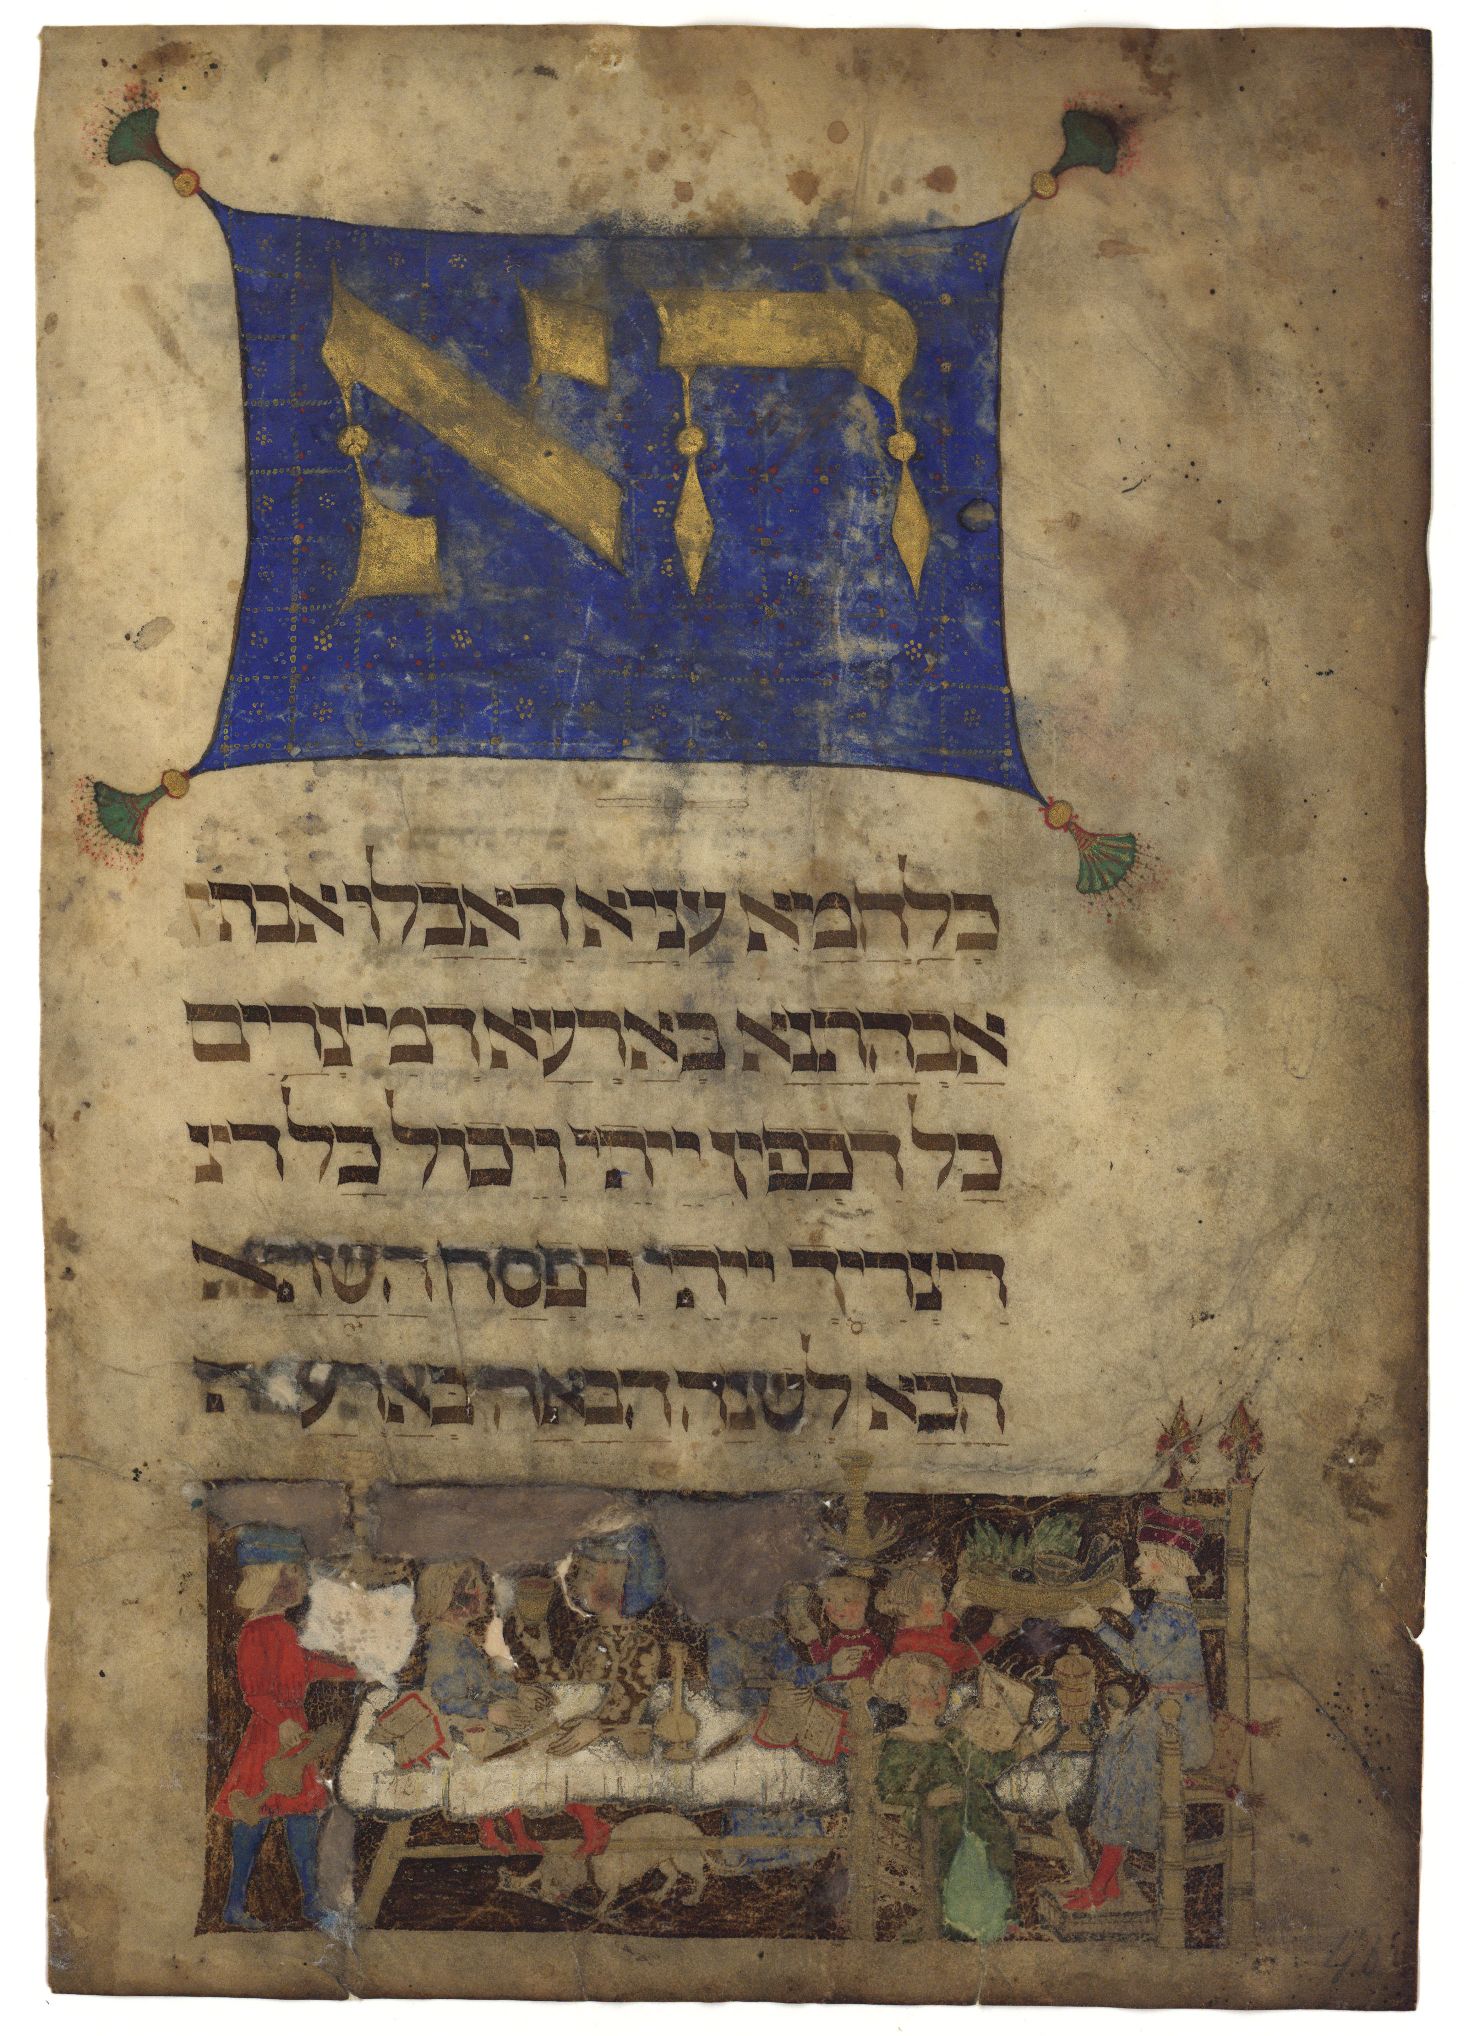 הא
כלחמא עניא דאכלו אבה
אבהתנא בארעא דמיצרים
כל דכפין ייתי ויכול כל דצ
דצריך ייתי ויפסח השתא
הכא לשנה הבאה